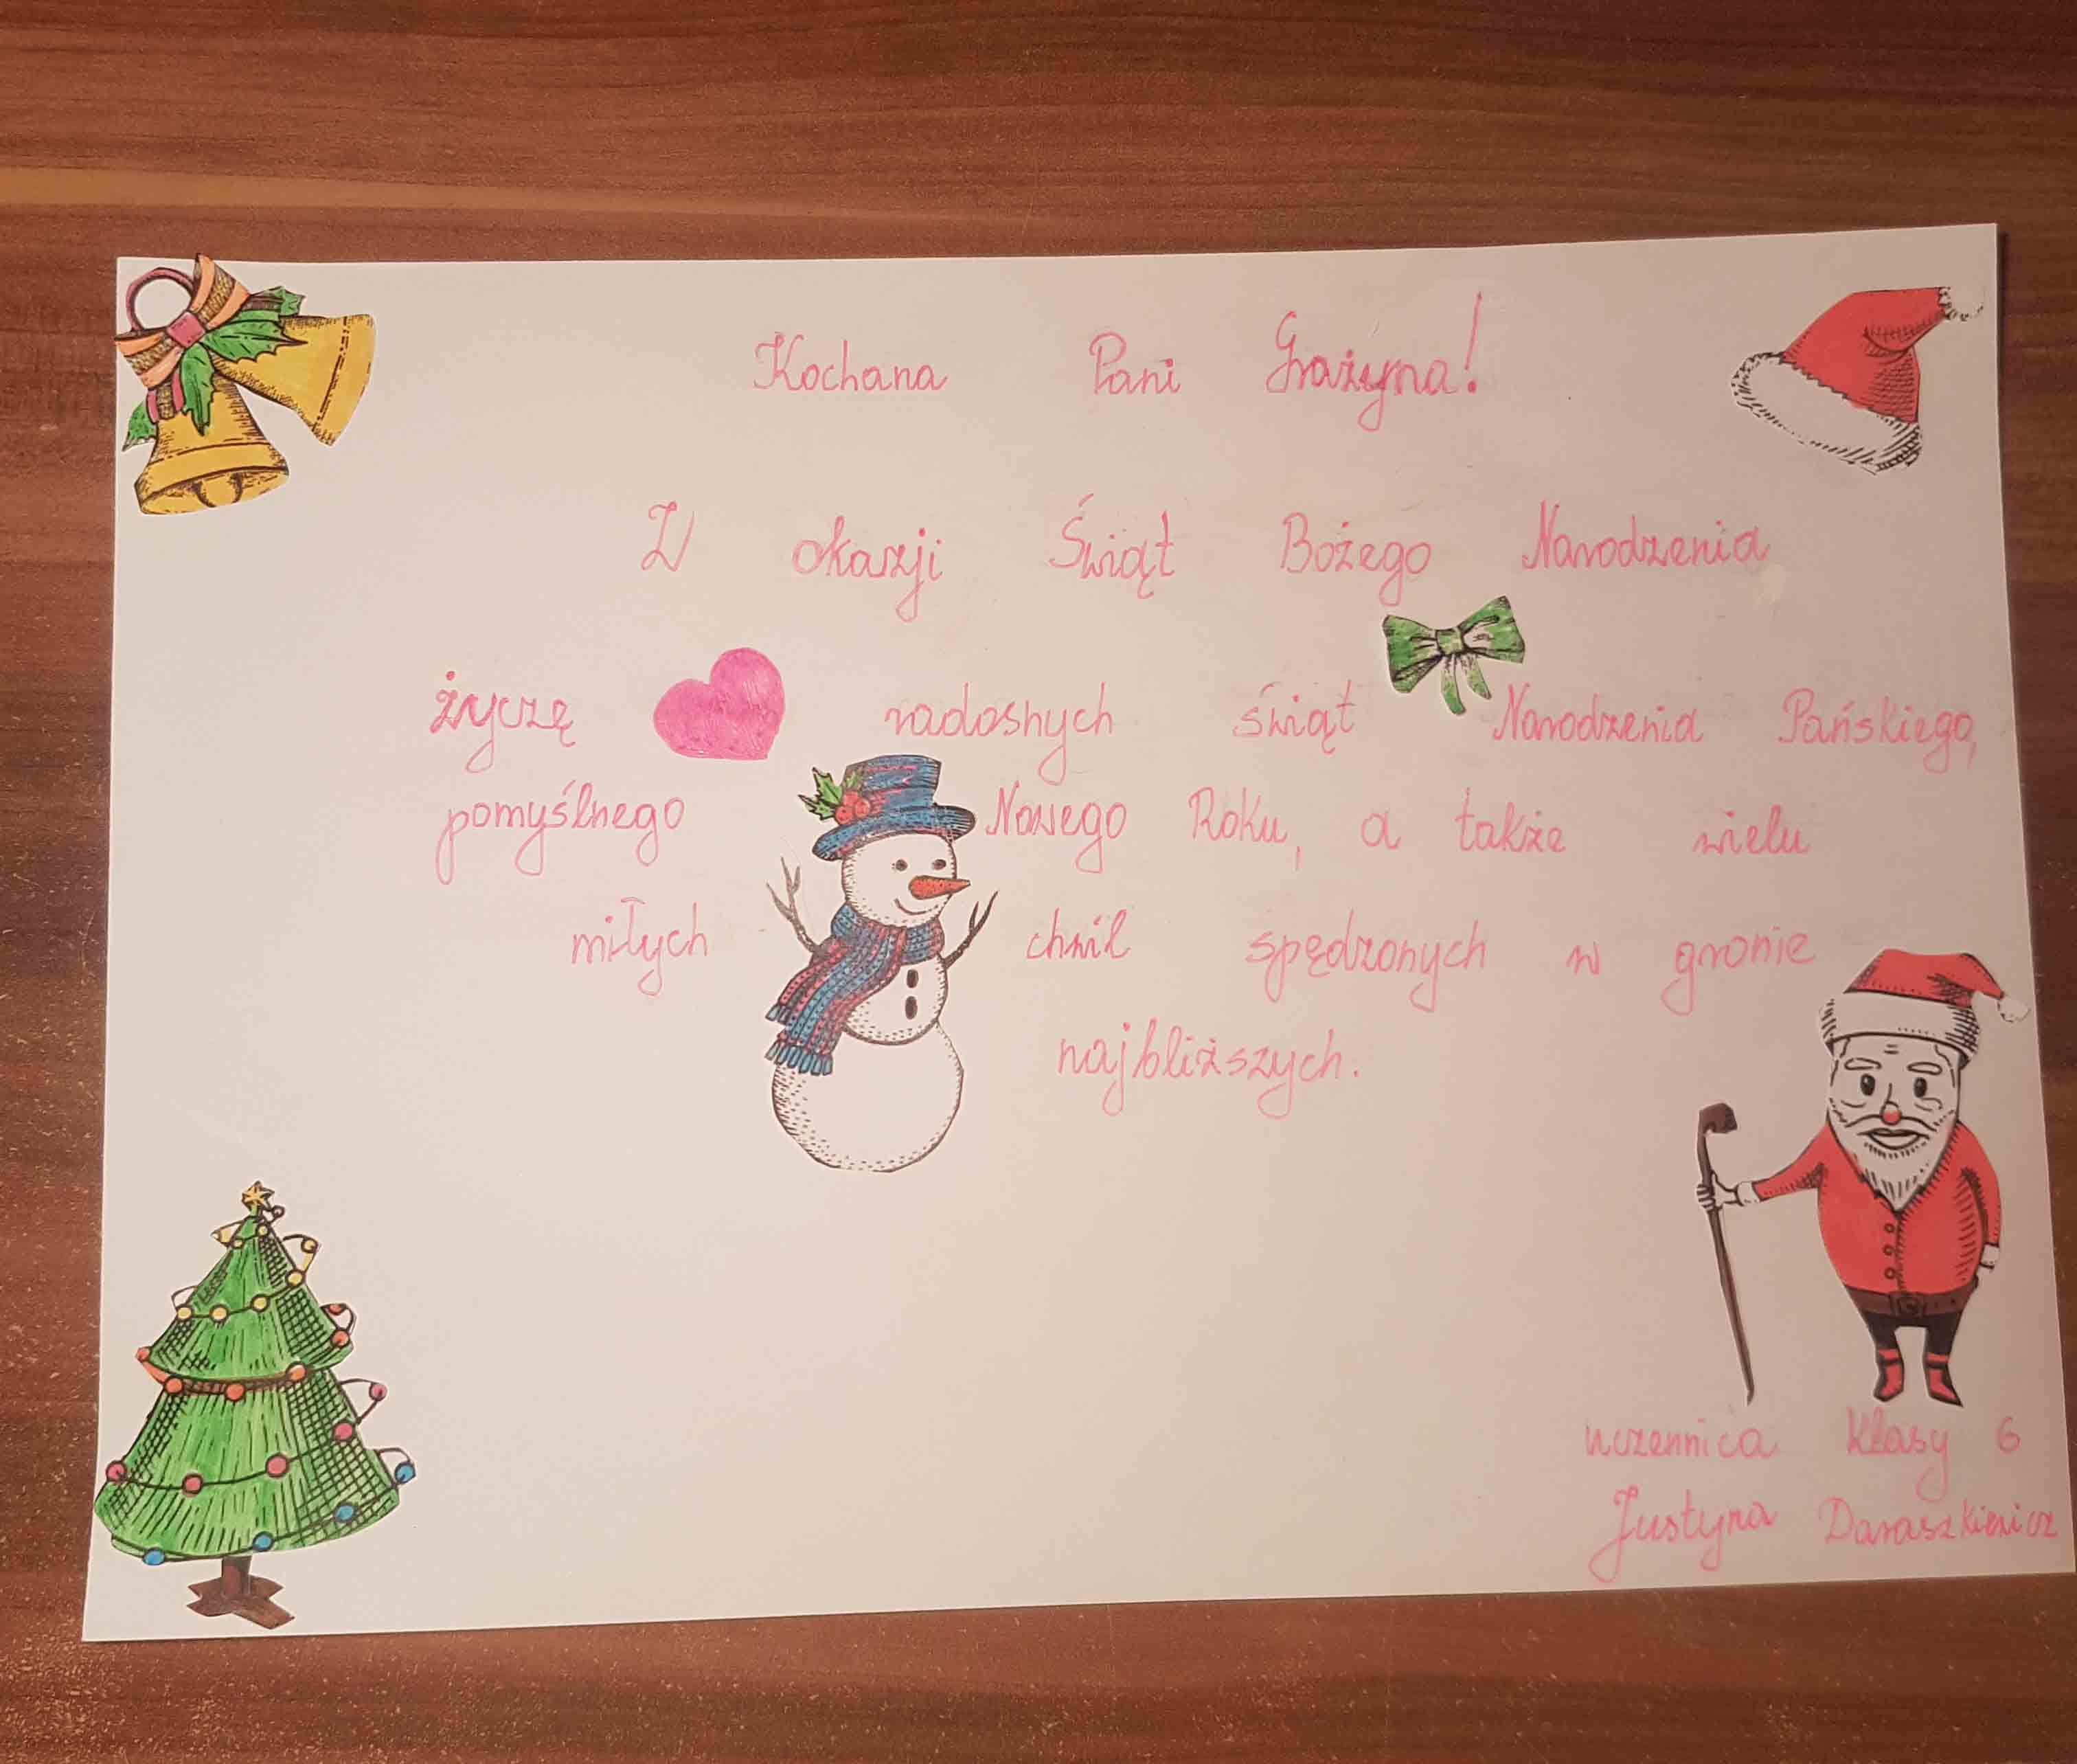 Kochana Pani Grażyna!
W okazji Świąt Bożego Narodzenia
życzę radosnych świąt Narodzenia Pańskiego,
pomyślnego Nowego Roku, a także wielu
miłych chwil spędzonych w gronie
najbliższych.
uczennica klasy 6
Justyna Daraszkiewicz